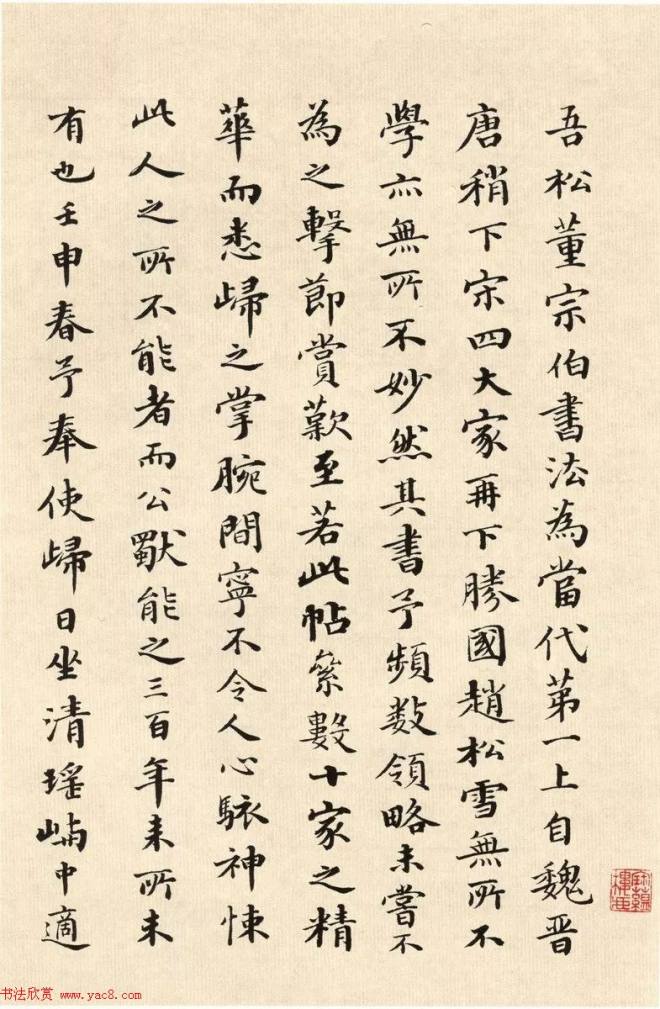 吾松董宗伯書法為當代第一上自魏晉
唐稍下宋四大家再下勝國趙松雪無所不
學亦無所不妙然其書予頻数領略未嘗不
為之擊節賞歎至若此帖纂數十家之精
華而悉歸之掌腕間寧不令人心駭神悚
此人之所不能者而公獸能之三百年来所未
有也壬申春予奉使歸日坐清瑤嶼中適
书法欣赏 www.yac8.com